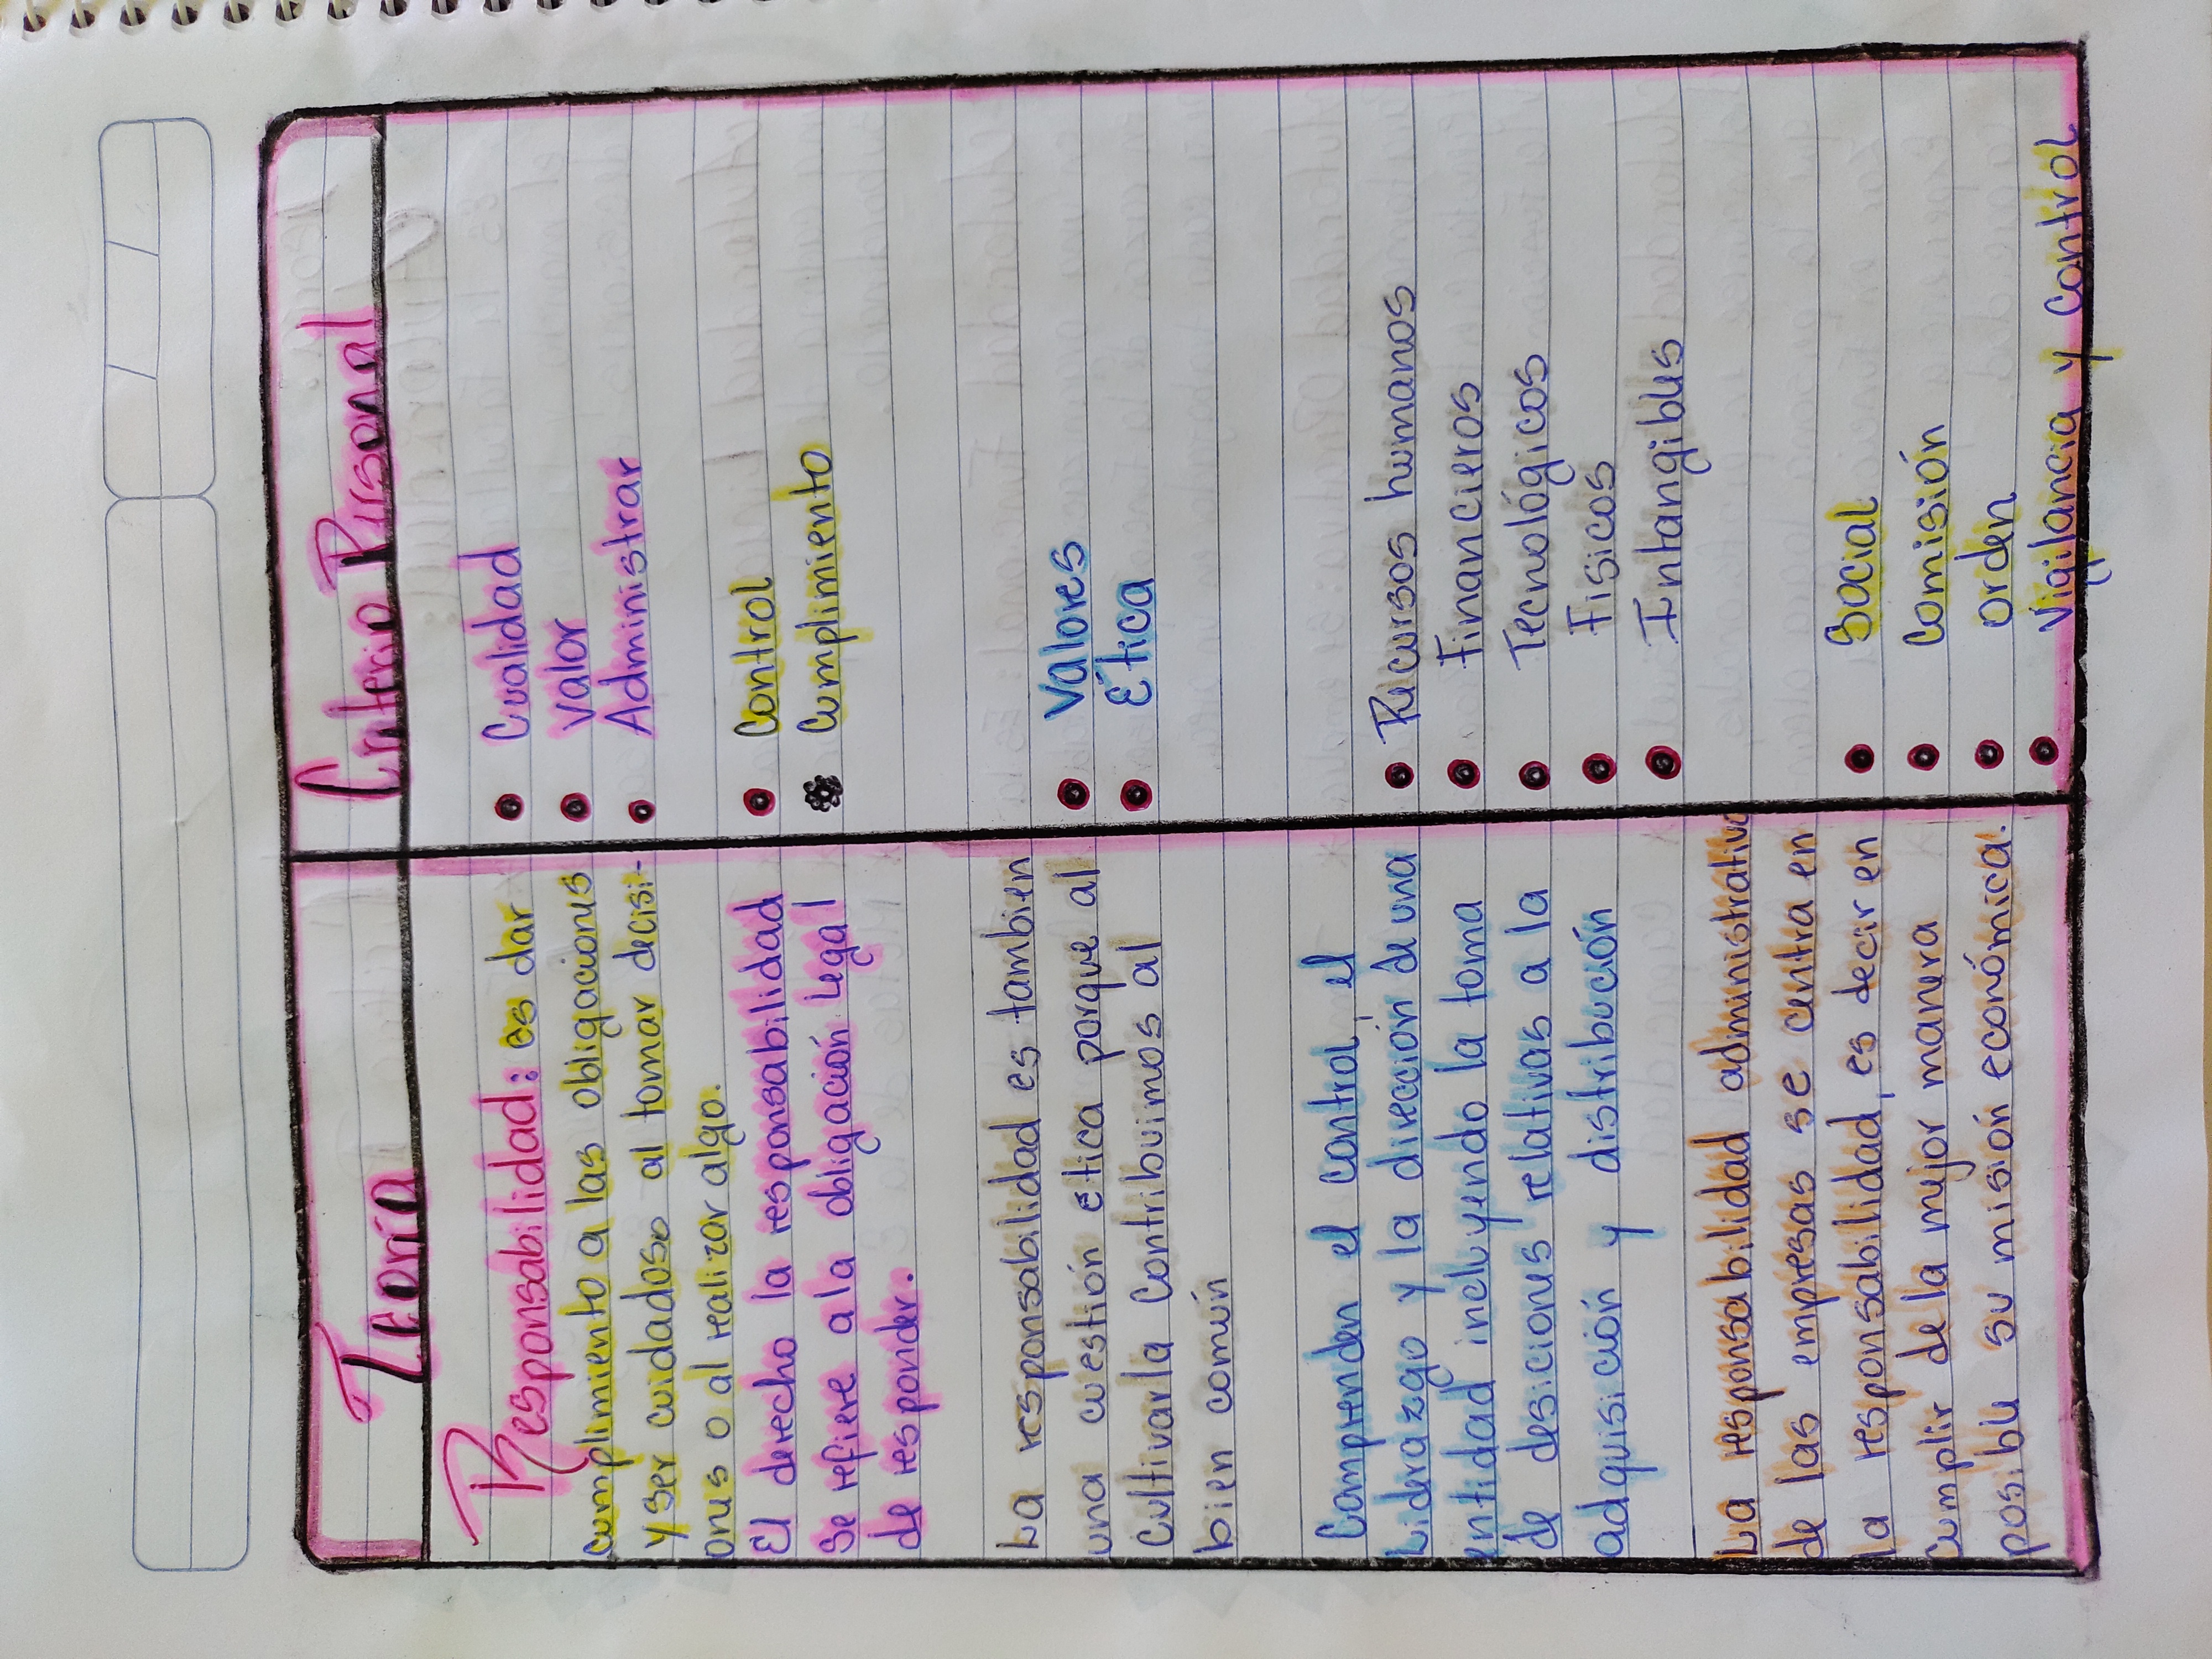 Teoría
Criterio Personal
Responsabilidad: es dar
cumplimiento a las obligaciones
y ser cuidadoso al tomar decisi-
ones o al realizar algo.
El derecho la responsabilidad
Se refiere a la obligación legal
de responder.
La responsabilidad es tambien
una cuestión etica porque al
Cultivarla contribuimos al
bien común
Comprenden el control, el
Liderazgo y la dirección de una
entidad incluyendo la toma
de desiciones relativas a la
adquisición y distribución
La responsabilidad administrativa
de las empresas se centra en
la responsabilidad, es decir en
cumplir de la mejor manera
posible su misión económica.
• Cualidad
• Valor
• Administrar
• Control
Cumplimiento
• Valores
• Ética
• Recursos humanos
• Financieros
• Tecnológicos
• Fisicos
• Intangibles
• Social
• Comisión
• orden
• Vigilancia y control